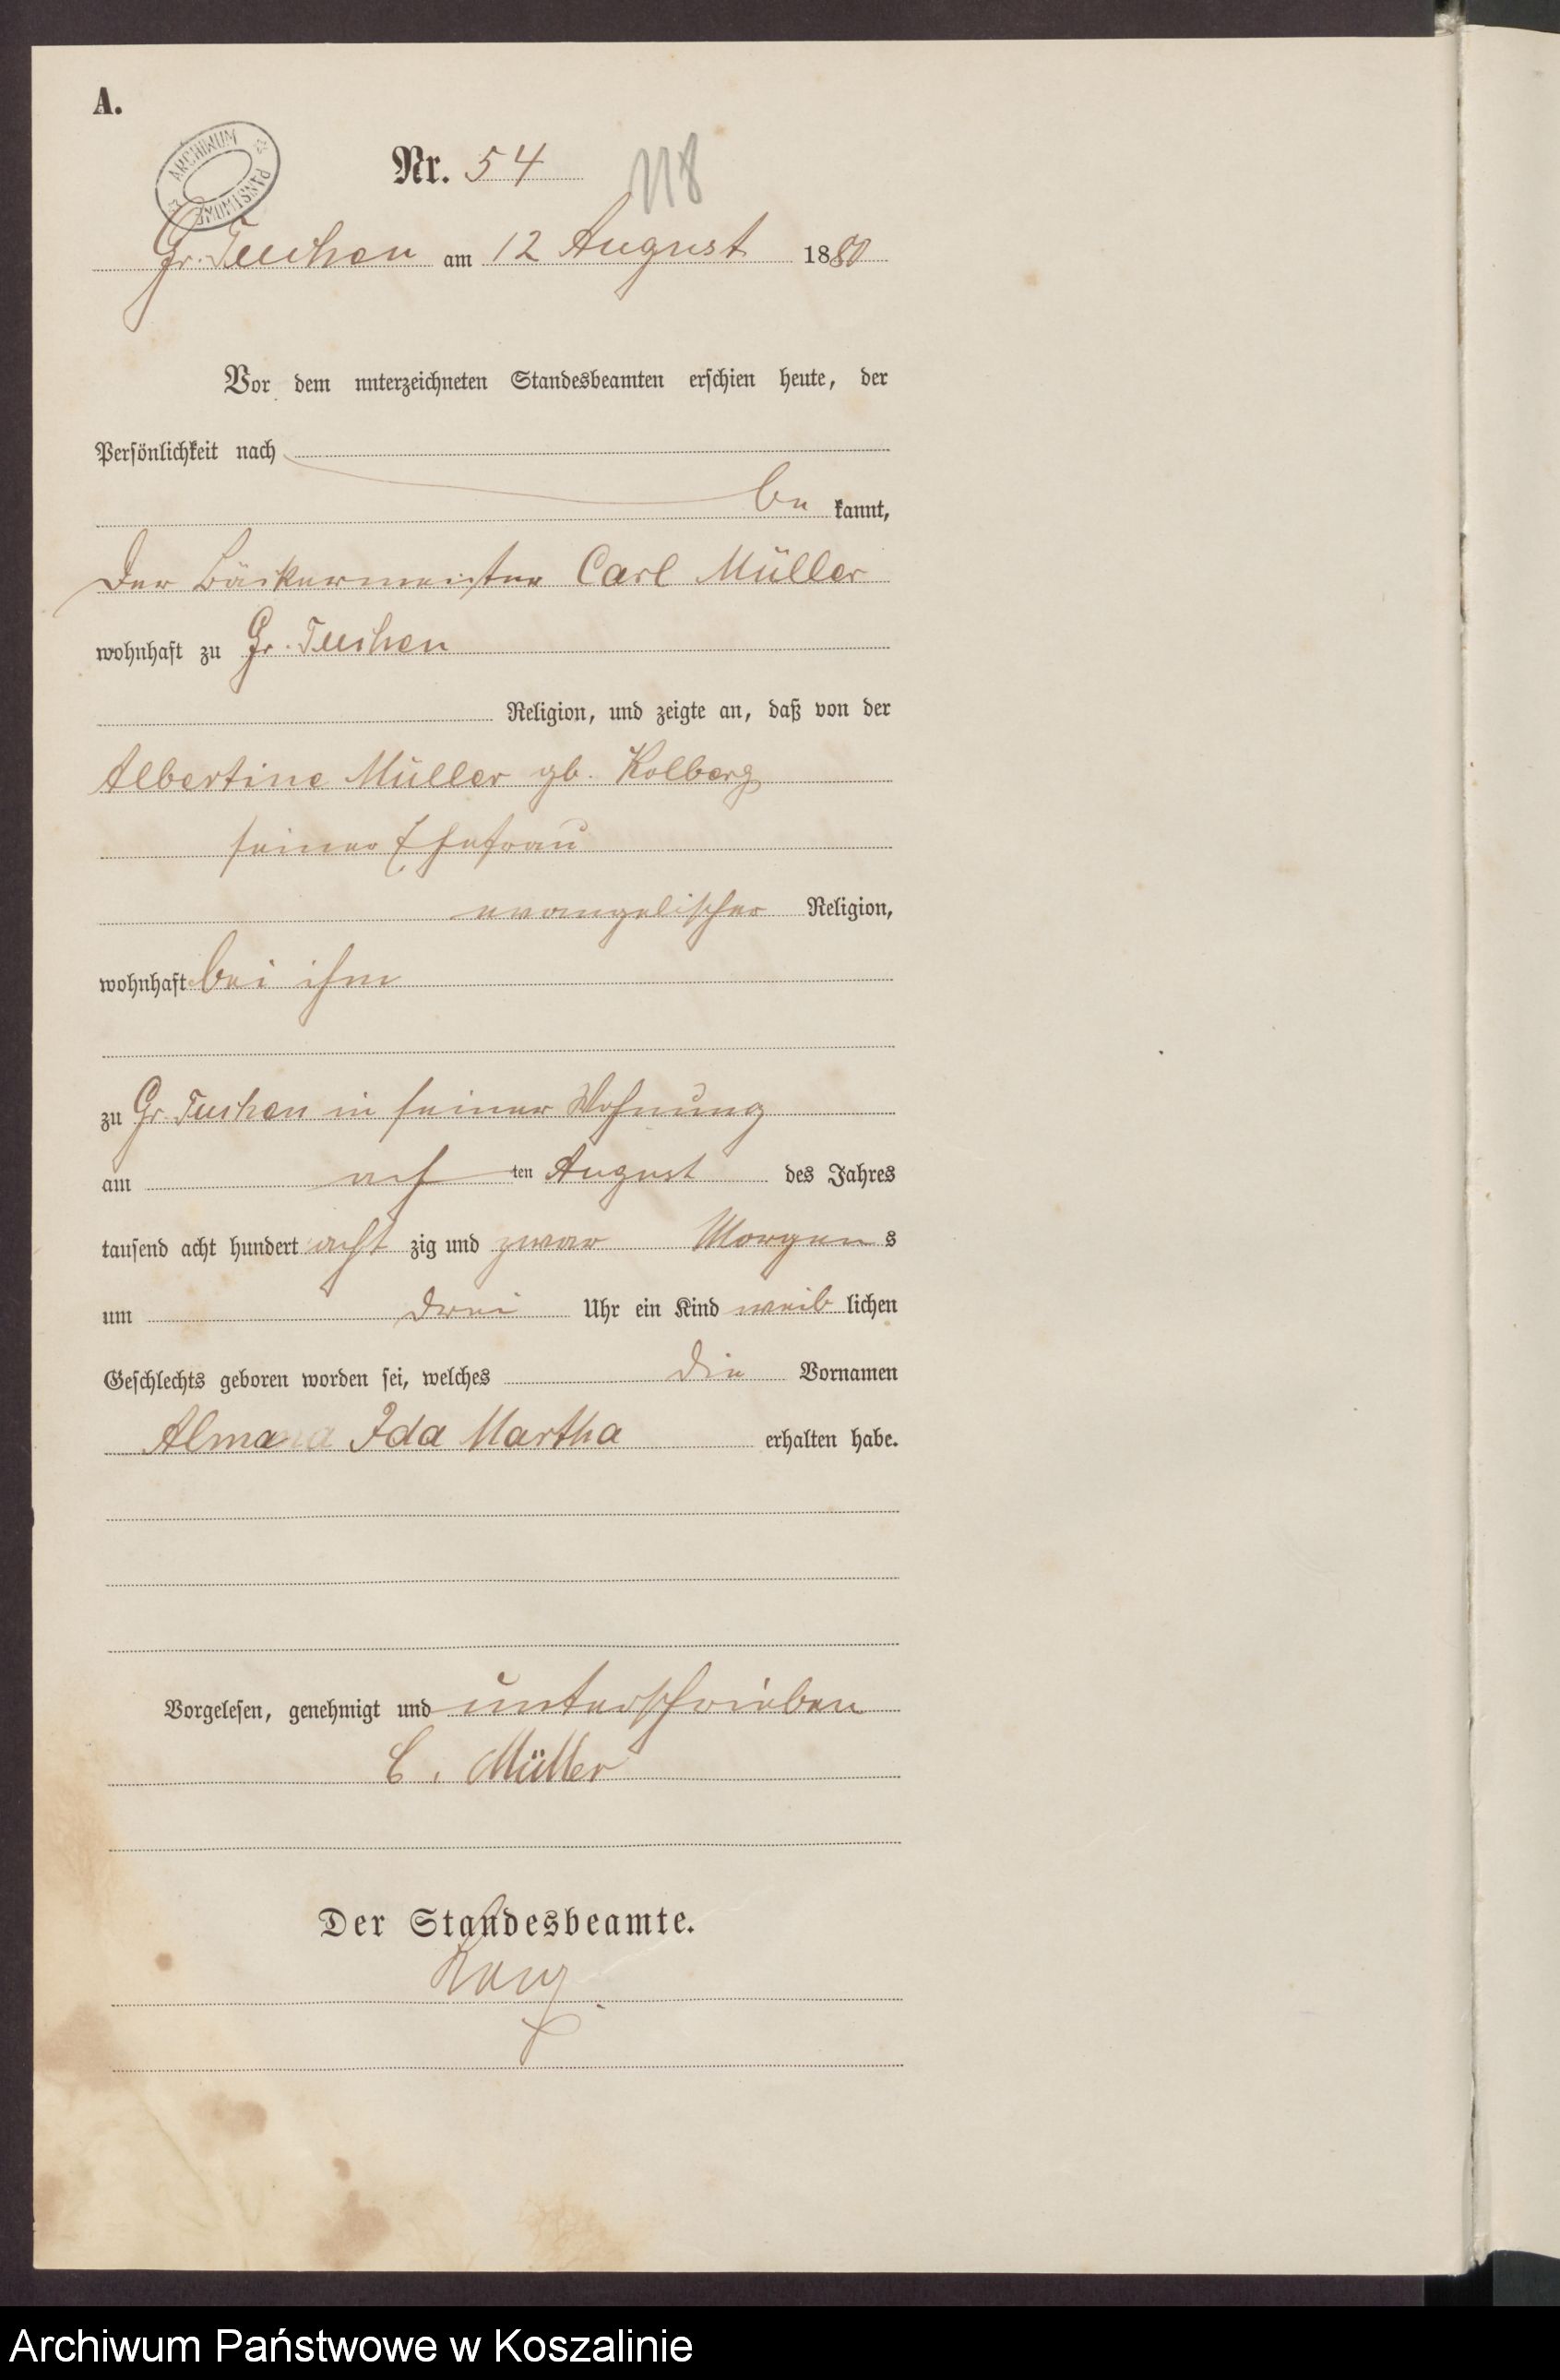 A.
ARCHIWUM PAŃSTWOWE
Nr. 54 118
Gr. Tuchen am 12 August 1880
Vor dem unterzeichneten Standesbeamten erschien heute, der
Persönlichkeit nach
be kannt,
der Bäckermeister Carl Müller
wohnhaft zu Gr. Tuchen
Religion, und zeigte an, daß von der
Albertine Müller gb. Kolberg
seiner Ehefrau
evangelischer Religion,
wohnhaft bei ihm
zu Gr. Tuchen in seiner Wohnung
am ach ten August des Jahres
tausend acht hundert acht zig und zwar Morgen s
um drei Uhr ein Kind weib lichen
Geschlechts geboren worden sei, welches die Vornamen
Alma Ida Martha erhalten habe.
Vorgelesen, genehmigt und unterschrieben
C. Müller
Der Standesbeamte.
Archiwum Państwowe w Koszalinie